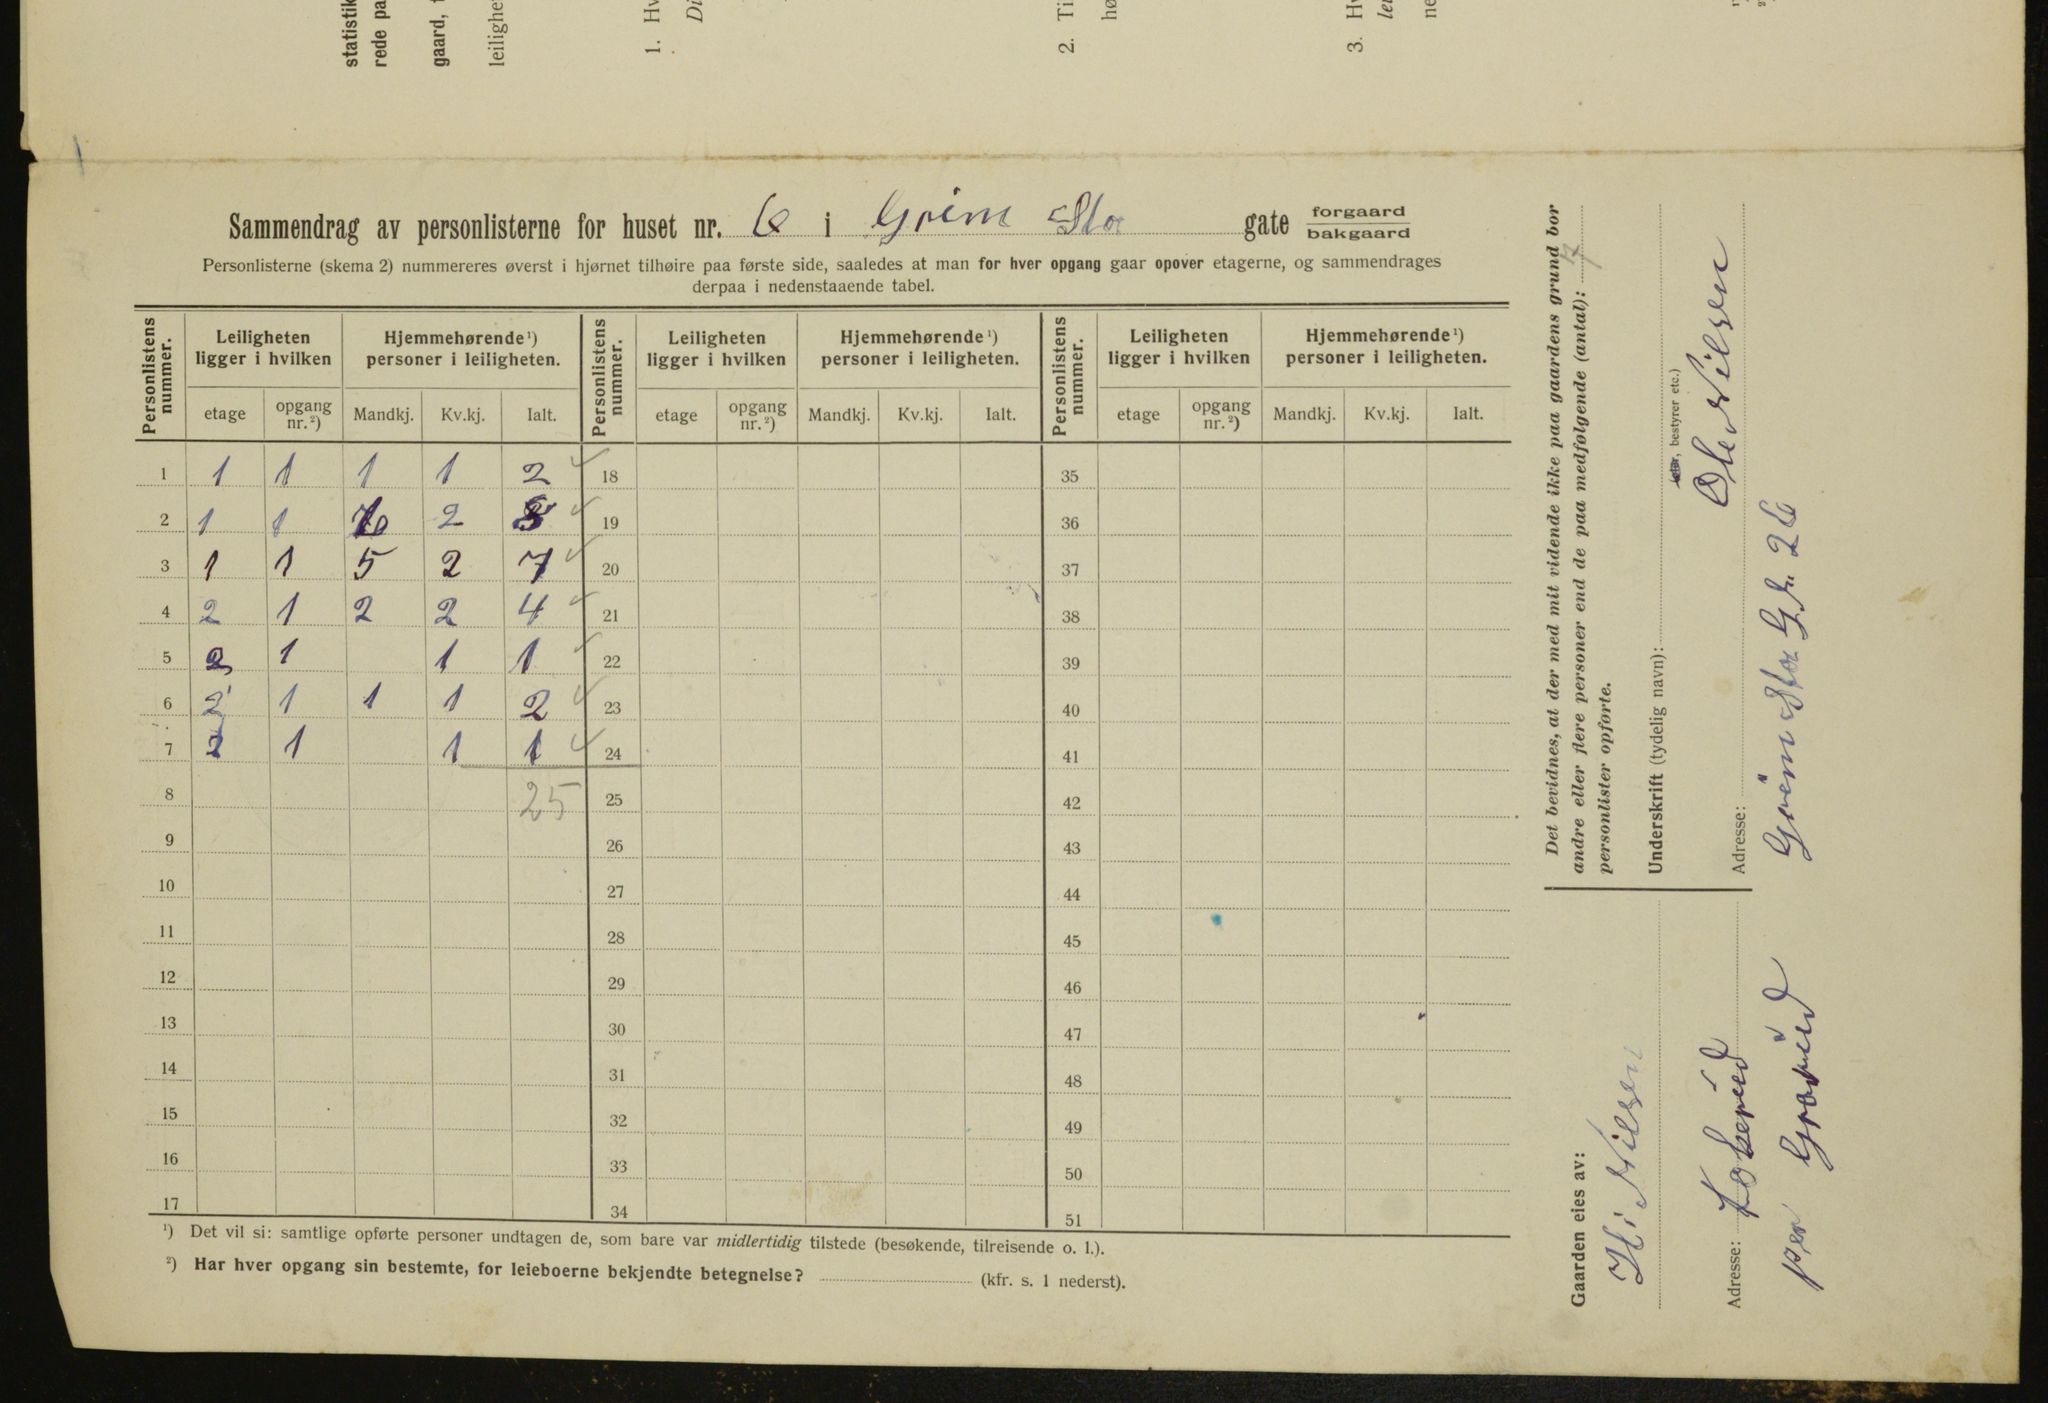 statistik
rede pa
gaard,
leilighe
1. Hv
Di
2. Ti
hø
3. Hv
lei
ne
Sammendrag av personlisterne for huset nr. 6 i Grim Sta gate forgaard
bakgaard
Personlisterne (skema 2) nummereres øverst i hjørnet tilhøire paa første side, saaledes at man for hver opgang gaar opover etagerne, og sammendrages
derpaa i nedenstaaende tabel.
Personlistens nummer. Leiligheten ligger i hvilken Hjemmehørende ¹) personer i leiligheten. Personlistens nummer. Leiligheten ligger i hvilken Hjemmehørende ¹) personer i leiligheten. Personlistens nummer. Leiligheten ligger i hvilken Hjemmehørende ¹) personer i leiligheten.
etage opgang nr. ²) Mandkj. Kv.kj. Ialt. etage opgang nr. ²) Mandkj. Kv.kj. Ialt. etage opgang nr. ²) Mandkj. Kv.kj. Ialt.
1 1 1 1 1 2 ✓ 18 35
2 1 1 6 2 8 ✓ 19 36
3 1 1 5 2 7 ✓ 20 37
4 2 1 2 2 4 ✓ 21 38
5 2 1 1 1 ✓ 22 39
6 2 1 1 1 2 ✓ 23 40
7 2 1 1 1 ✓ 24 41
8 25 25 42
9 26 43
10 27 44
11 28 45
12 29 46
13 30 47
14 31 48
15 32 49
16 33 50
17 34 51
¹) Det vil si: samtlige opførte personer undtagen de, som bare var midlertidig tilstede (besøkende, tilreisende o. l.).
²) Har hver opgang sin bestemte, for leieboerne bekjendte betegnelse? (kfr. s. 1 nederst).
Det bevidnes, at der med mit vidende ikke paa gaardens grund bor
andre eller flere personer end de paa medfølgende (antal): 7
personlister opførte.
Underskrift (tydelig navn):
, bestyrer etc.)
Ole Nilsen
Adresse:
Grim Sta Gr. 26
Gaarden eies av:
Nilsen
Adresse:
per